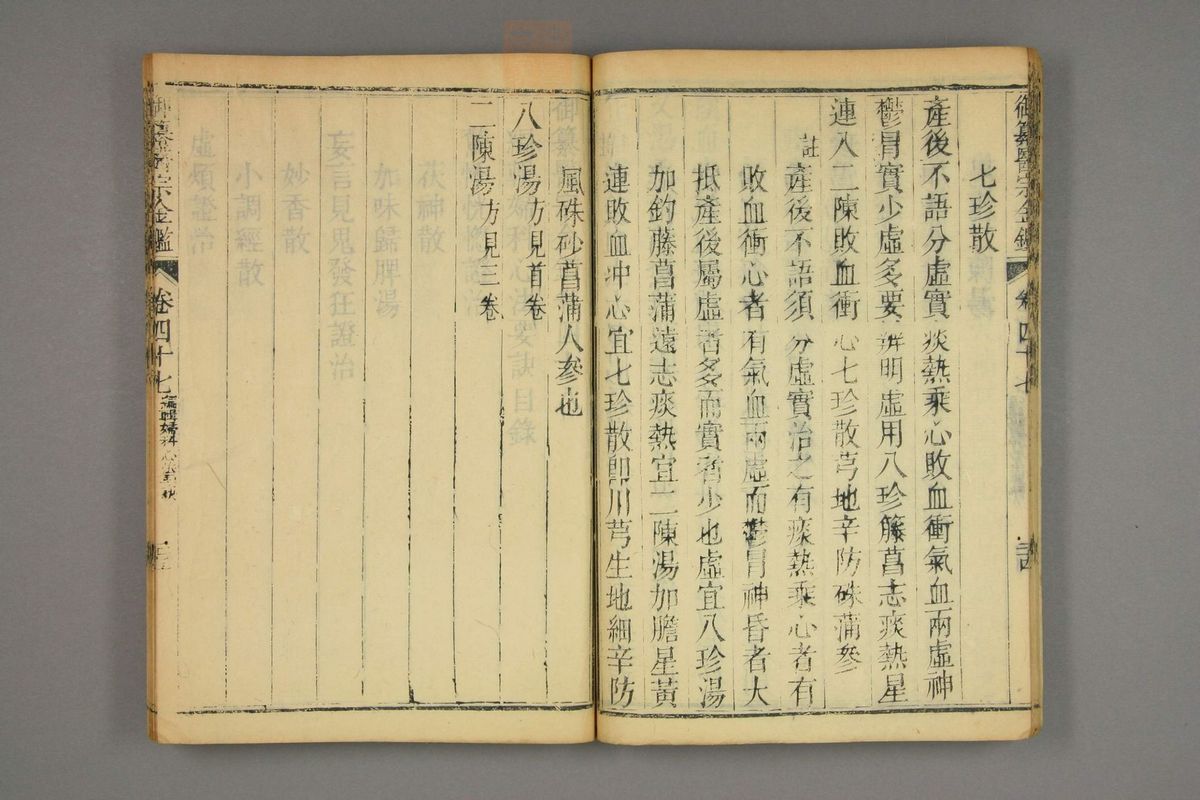 御纂醫宗金鑑 卷四十七
七珍散
產後不語分虛實痰熱乘心敗血衝氣血兩虛神
鬱冒實少虛多要辨明虛用八珍籐菖志痰熱星
連入二陳敗血衝心七珍散芎地辛防硃蒲參
註產後不語須分虛實治之有痰熱乘心者有
敗血衝心者有氣血兩虛而鬱冒神昏者大
抵產後屬虛者多而實者少也虛宜八珍湯
加釣藤菖蒲遠志痰熱宜二陳湯加膽星黃
連敗血冲心宜七珍散卽川芎生地細辛防
風硃砂菖蒲人參也
八珍湯 方見首卷
二陳湯 方見三卷
御纂醫宗金鑑 卷四十七 編輯婦科心法要訣